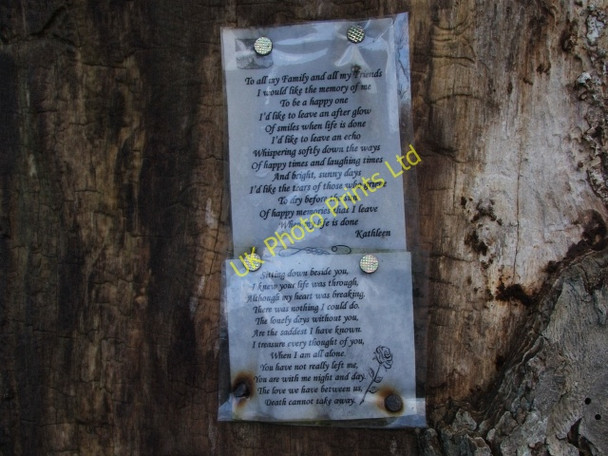 To all my Family and all my Friends
I would like the memory of me
To be a happy one
I'd like to leave an after glow
Of smiles when life is done
I'd like to leave an echo
Whispering softly down the ways
Of happy times and laughing times
And bright, sunny days
I'd like the tears of those who grieve
To dry before
Of happy memories that I leave
When life is done
Kathleen
Sitting down beside you,
I knew your life was through,
Although my heart was breaking,
There was nothing I could do.
The lonely days without you,
Are the saddest I have known.
I treasure every thought of you,
When I am all alone.
You have not really left me,
You are with me night and day.
The love we have between us,
Death cannot take away.
UK Photo Prints Ltd